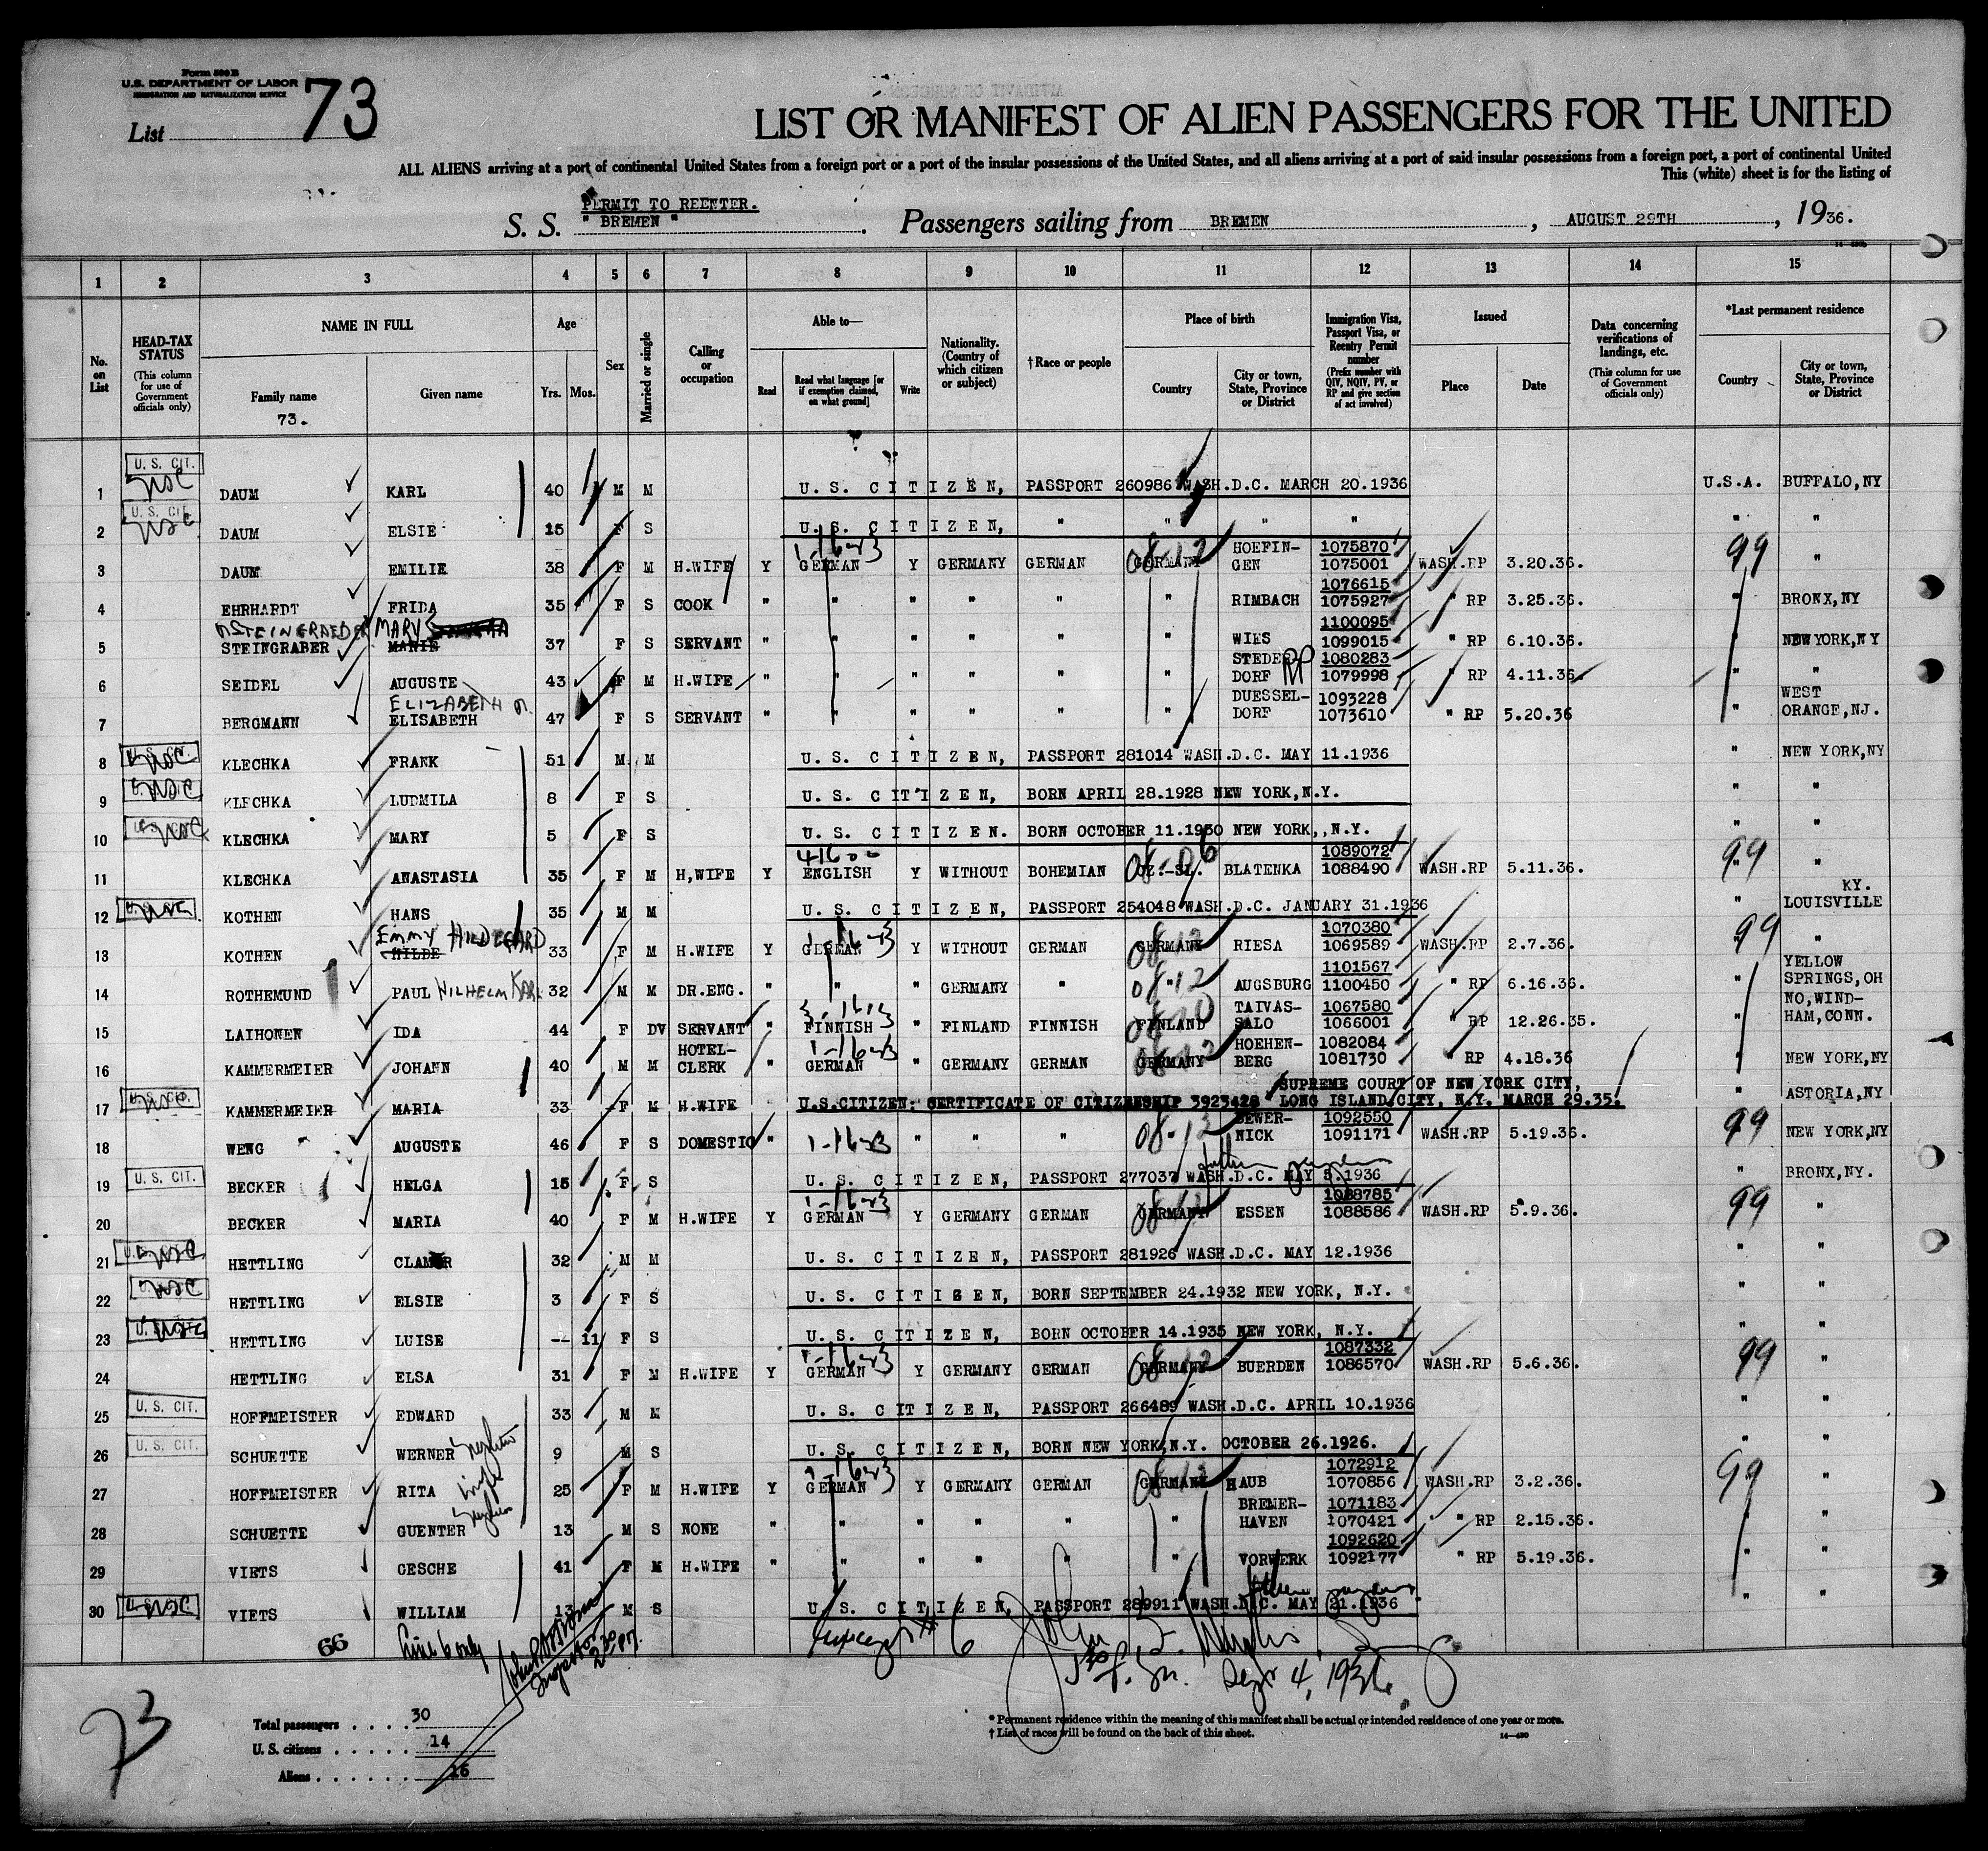 Form 500 B
U.S. DEPARTMENT OF LABOR
IMMIGRATION AND NATURALIZATION SERVICE
List 73
LIST OR MANIFEST OF ALIEN PASSENGERS FOR THE UNITED
ALL ALIENS arriving at a port of continental United States from a foreign port or a port of the insular possessions of the United States, and all aliens arriving at a port of said insular possessions from a foreign port, a port of continental United
This (white) sheet is for the listing of
PERMIT TO REENTER.
S. S. " BREMEN " . Passengers sailing from BREMEN , AUGUST 29TH , 1936.
1 2 3 4 5 6 7 8 9 10 11 12 13 14 15
No. on List
HEAD-TAX STATUS (This column for use of Government officials only)
NAME IN FULL
Family name
73.
Given name
Age
Yrs. Mos.
Sex
Married or single
Calling or occupation
Able to—
Read
Read what language [or if exemption claimed, on what ground]
Write
Nationality. (Country of which citizen or subject)
†Race or people
Place of birth
Country
City or town, State, Province or District
Immigration Visa, Passport Visa, or Reentry Permit number (Prefix number with QIV, NQIV, PV, or RP and give section of act involved)
Issued
Place
Date
Data concerning verifications of landings, etc. (This column for use of Government officials only)
*Last permanent residence
Country
City or town, State, Province or District
U. S. CIT. USC
1 DAUM KARL 40 M M U. S. C I T I Z E N, PASSPORT 260986 WASH.D.C. MARCH 20.1936 U.S.A. BUFFALO,NY
U. S. CIT. USC
2 DAUM ELSIE 15 F S U. S. C I T I Z E N, " " " " " "
1-1643 HOEFIN- 1075870
3 DAUM EMILIE 38 F M H.WIFE Y GERMAN Y GERMANY GERMAN GERMANY 08-12 GEN 1075001 WASH.RP 3.20.36. 99 "
1076615
4 EHRHARDT FRIDA 35 F S COOK " " " " " " RIMBACH 1075927 " RP 3.25.36. " BRONX,NY
STEINGRAEBER MARY 1100095
5 STEINGRABER MARIE 37 F S SERVANT " " " " " " WIES 1099015 " RP 6.10.36. " NEW YORK,NY
STEDER 1080283
6 SEIDEL AUGUSTE 43 F M H.WIFE " " " " " " DORF RP 1079998 " RP 4.11.36 " "
ELIZABETH DUESSEL- 1093228 WEST
7 BERGMANN ELISABETH 47 F S SERVANT " " " " " " DORF 1073610 " RP 5.20.36 " ORANGE,NJ.
8 U. S. CIT. USC KLECHKA FRANK 51 M M U. S. C I T I Z E N, PASSPORT 281014 WASH.D.C. MAY 11.1936 " NEW YORK,NY
9 USC KLECHKA LUDMILA 8 F S U. S. C I T I Z E N, BORN APRIL 28.1928 NEW YORK,N.Y. " "
10 USC KLECHKA MARY 5 F S U. S. C I T I Z E N. BORN OCTOBER 11.1930 NEW YORK,,N.Y. " "
41600 1089072
11 KLECHKA ANASTASIA 35 F M H,WIFE Y ENGLISH Y WITHOUT BOHEMIAN CZ.-SL. 08-06 BLATENKA 1088490 WASH.RP 5.11.36. 99 "
KY.
12 USC KOTHEN HANS 35 M M U. S. C I T I Z E N, PASSPORT 254048 WASH.D.C. JANUARY 31.1936 " LOUISVILLE
EMMY HILDEGARD 1-1643 1070380
13 KOTHEN HILDE 33 F M H.WIFE Y GERMAN Y WITHOUT GERMAN GERMANY 08-12 RIESA 1069589 WASH.RP 2.7.36. 99 "
1101567 YELLOW
14 ROTHEMUND PAUL WILHELM KARL 32 M M DR.ENG. " " " GERMANY " " 08-12 AUGSBURG 1100450 " RP 6.16.36. " SPRINGS,OH
TAIVAS- 1067580 NO,WIND-
15 LAIHONEN IDA 44 F DV SERVANT " FINNISH " FINLAND FINNISH FINLAND SALO 1066001 " RP 12.26.35. " HAM,CONN.
HOTEL- 1-1643 HOEHEN- 1082084
16 KAMMERMEIER JOHANN 40 M M CLERK " GERMAN " GERMANY GERMAN GERMANY 08-12 BERG 1081730 " RP 4.18.36 " NEW YORK,NY
SUPREME COURT OF NEW YORK CITY,
17 USC KAMMERMEIER MARIA 33 F M H.WIFE U.S.CITIZEN: CERTIFICATE OF CITIZENSHIP 3923428 LONG ISLAND CITY, N.Y. MARCH 29.35. " ASTORIA,NY
BEWER- 1092550
18 WENG AUGUSTE 46 F S DOMESTIC " 1-1643 " " " 08-12 NICK 1091171 WASH.RP 5.19.36. 99 NEW YORK,NY
19 U. S. CIT. BECKER HELGA 15 F S U. S. C I T I Z E N, PASSPORT 277037 WASH.D.C. MAY 5.1936 " BRONX,NY.
1-1643 1088785
20 BECKER MARIA 40 F M H.WIFE Y GERMAN Y GERMANY GERMAN GERMANY 08-12 ESSEN 1088586 WASH.RP 5.9.36. 99 "
21 USC HETTLING CLAMOR 32 M M U. S. C I T I Z E N, PASSPORT 281926 WASH.D.C. MAY 12.1936 " "
22 USC HETTLING ELSIE 3 F S U. S. C I T I G E N, BORN SEPTEMBER 24.1932 NEW YORK, N.Y. " "
23 USC HETTLING LUISE -- 11 F S U. S. C I T I Z E N, BORN OCTOBER 14.1935 NEW YORK, N.Y. " "
1-1643 1087332
24 HETTLING ELSA 31 F M H.WIFE Y GERMAN Y GERMANY GERMAN GERMANY 08-12 BUERDEN 1086570 WASH.RP 5.6.36. 99 "
25 U. S. CIT. HOFFMEISTER EDWARD 33 M M U. S. C I T I Z E N, PASSPORT 266489 WASH.D.C. APRIL 10.1936 " "
26 U. S. CIT. SCHUETTE WERNER nephew 9 M S U. S. C I T I Z E N, BORN NEW YORK,N.Y. OCTOBER 26.1926. " "
1-1643 1072912
27 HOFFMEISTER RITA wife 25 F M H.WIFE Y GERMAN Y GERMANY GERMAN GERMANY 08-12 HAUB 1070856 WASH.RP 3.2.36. 99 "
BREMER- 1071183
28 SCHUETTE GUENTER nephew 13 M S NONE " " " " " " HAVEN 1070421 " RP 2.15.36. " "
1092620
29 VIETS GESCHE 41 F M H.WIFE " " " " " " VORWERK 1092177 " RP 5.19.36. " "
30 USC VIETS WILLIAM 13 M S U. S. C I T I Z E N, PASSPORT 289911 WASH.D.C. MAY 21.1936 " "
66 Line 6 only Inspector 2 30 PM. except # 6
Sept 4, 1936
73
Total passengers . . . . 30
U. S. citizens . . . . . 14
Aliens . . . . . . 16
* Permanent residence within the meaning of this manifest shall be actual or intended residence of one year or more.
† List of races will be found on the back of this sheet.
14—430